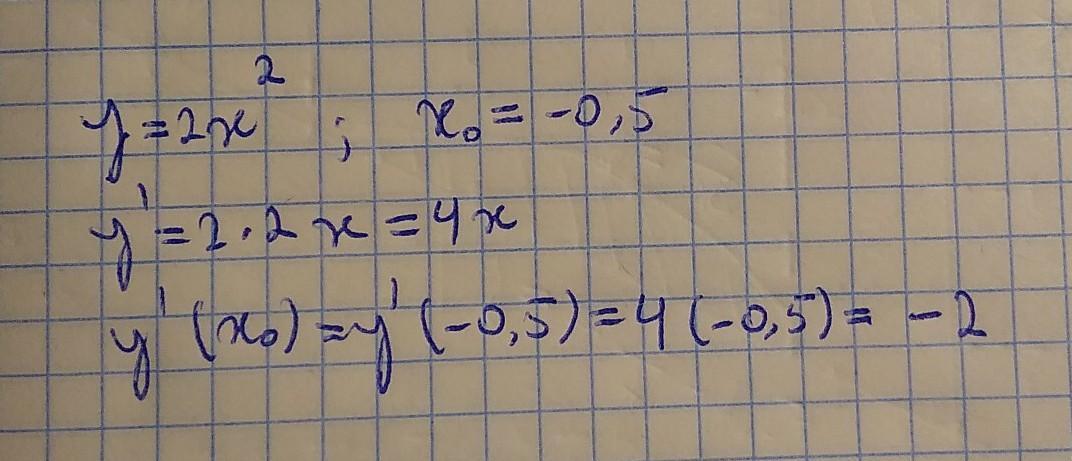 y = 2x² ; x₀ = -0,5
y' = 2·2x = 4x
y'(x₀) = y'(-0,5) = 4(-0,5) = -2